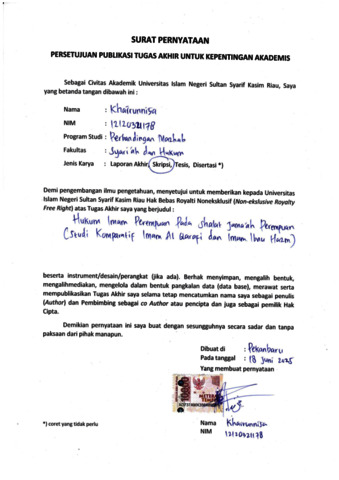 SURAT PERNYATAAN
PERSETUJUAN PUBLIKASI TUGAS AKHIR UNTUK KEPENTINGAN AKADEMIS
Sebagai Civitas Akademik Universitas Islam Negeri Sultan Syarif Kasim Riau, Saya
yang betanda tangan dibawah ini :
Nama : Khairunnisa
NIM : 12120321178
Program Studi : Perbandingan Mazhab
Fakultas : Syari'ah dan Hukum
Jenis Karya : Laporan Akhir, Skripsi, Tesis, Disertasi *)
Demi pengembangan ilmu pengetahuan, menyetujui untuk memberikan kepada Universitas
Islam Negeri Sultan Syarif Kasim Riau Hak Bebas Royalti Noneksklusif (Non-ekslusive Royalty
Free Right) atas Tugas Akhir saya yang berjudul :
Hukum Imam Perempuan Pada Shalat Jama'ah Perempuan
(Studi Komparatif Imam Al Qarafi dan Imam Ibnu Hazm)
beserta instrument/desain/perangkat (jika ada). Berhak menyimpan, mengalih bentuk,
mengalihmediakan, mengelola dalam bentuk pangkalan data (data base), merawat serta
mempublikasikan Tugas Akhir saya selama tetap mencatumkan nama saya sebagai penulis
(Author) dan Pembimbing sebagai co Author atau pencipta dan juga sebagai pemilik Hak
Cipta.
Demikian pernyataan ini saya buat dengan sesungguhnya secara sadar dan tanpa
paksaan dari pihak manapun.
Dibuat di : Pekanbaru
Pada tanggal : 18 Juni 2025
Yang membuat pernyataan
10000
METERAI
TEMPEL
*) coret yang tidak perlu
Nama Khairunnisa
NIM 12120321178